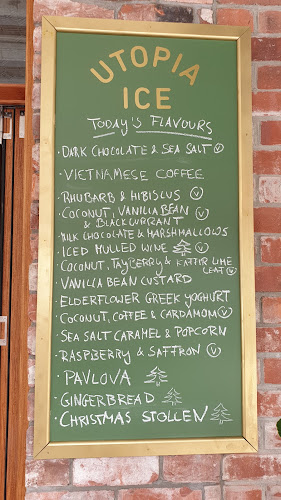 UTOPIA
ICE
TODAY'S FLAVOURS
· DARK CHOCOLATE & SEA SALT V
· VIETNAMESE COFFEE
· RHUBARB & HIBISCUS V
· COCONUT, VANILLA BEAN V
& BLACKCURRANT
· MILK CHOCOLATE & MARSHMALLOWS
· ICED MULLED WINE V
· COCONUT, TAYBERRY & KAFFIR LIME
LEAF V
· VANILLA BEAN CUSTARD
· ELDERFLOWER GREEK YOGHURT
· COCONUT, COFFEE & CARDAMOM V
· SEA SALT CARAMEL & POPCORN
· RASPBERRY & SAFFRON V
· PAVLOVA
· GINGERBREAD
· CHRISTMAS STOLLEN